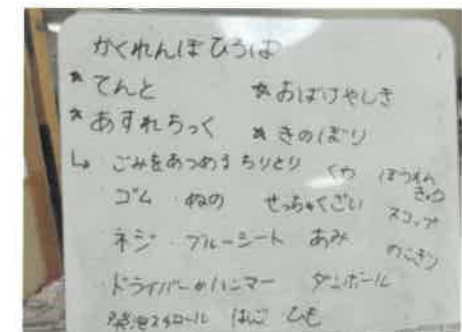 かくれんぼひろば
*てんと *おばけやしき
*あすれちっく *きのぼり
↳ ごみをあつめるちりとり くわ ぼうえんきょう
ゴム ぬの せっちゃくざい スコップ
ネジ ブルーシート あみ のこぎり
ドライバー ハンマー ダンボール
発泡スチロール はしご ひも